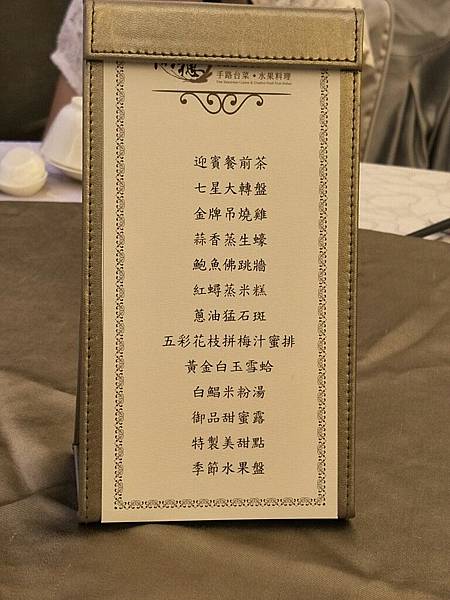 穗
手路台菜•水果料理
迎賓餐前茶
七星大轉盤
金牌吊燒雞
蒜香蒸生蠔
鮑魚佛跳牆
紅蟳蒸米糕
蔥油猛石斑
五彩花枝拼梅汁蜜排
黃金白玉雪蛤
白鯧米粉湯
御品甜蜜露
特製美甜點
季節水果盤